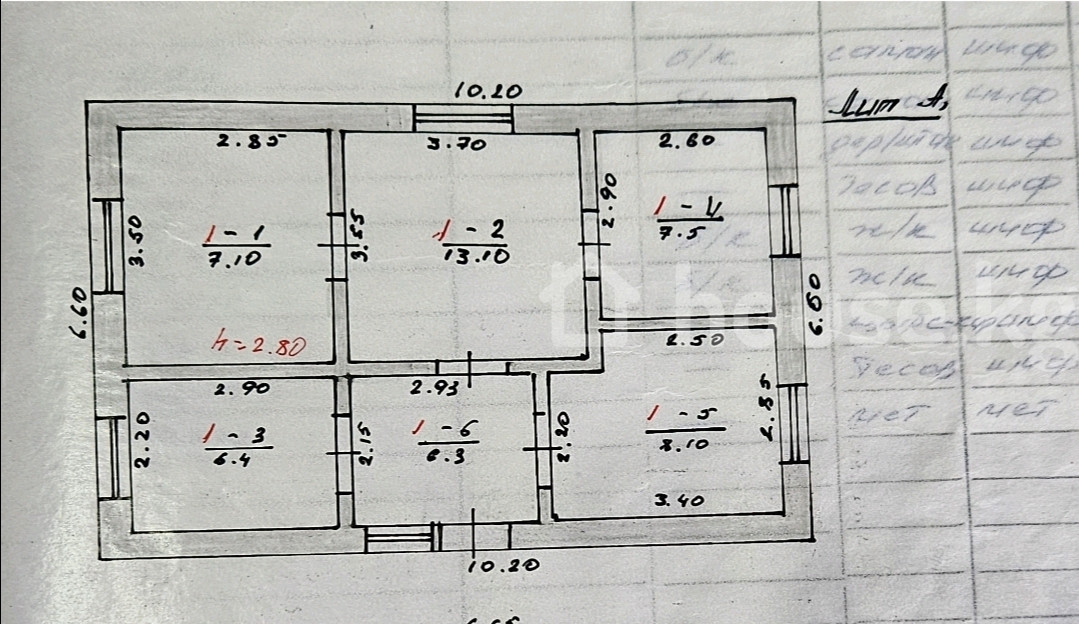 б/к саман шиф
10.20
Лит А,
шиф
2.85
3.70
2.60
шиф
тесов шиф
3.50
1-1
7.10
3.55
1-2
13.10
2.90
1-4
7.5
ж/к шиф
б/к ж/к шиф
6.60
6.60
h=2.80
2.50
house.kg
тесов шиф
2.90
2.93
нет нет
2.20
1-3
6.4
2.15
1-6
6.3
2.20
1-5
8.10
2.85
3.40
10.20